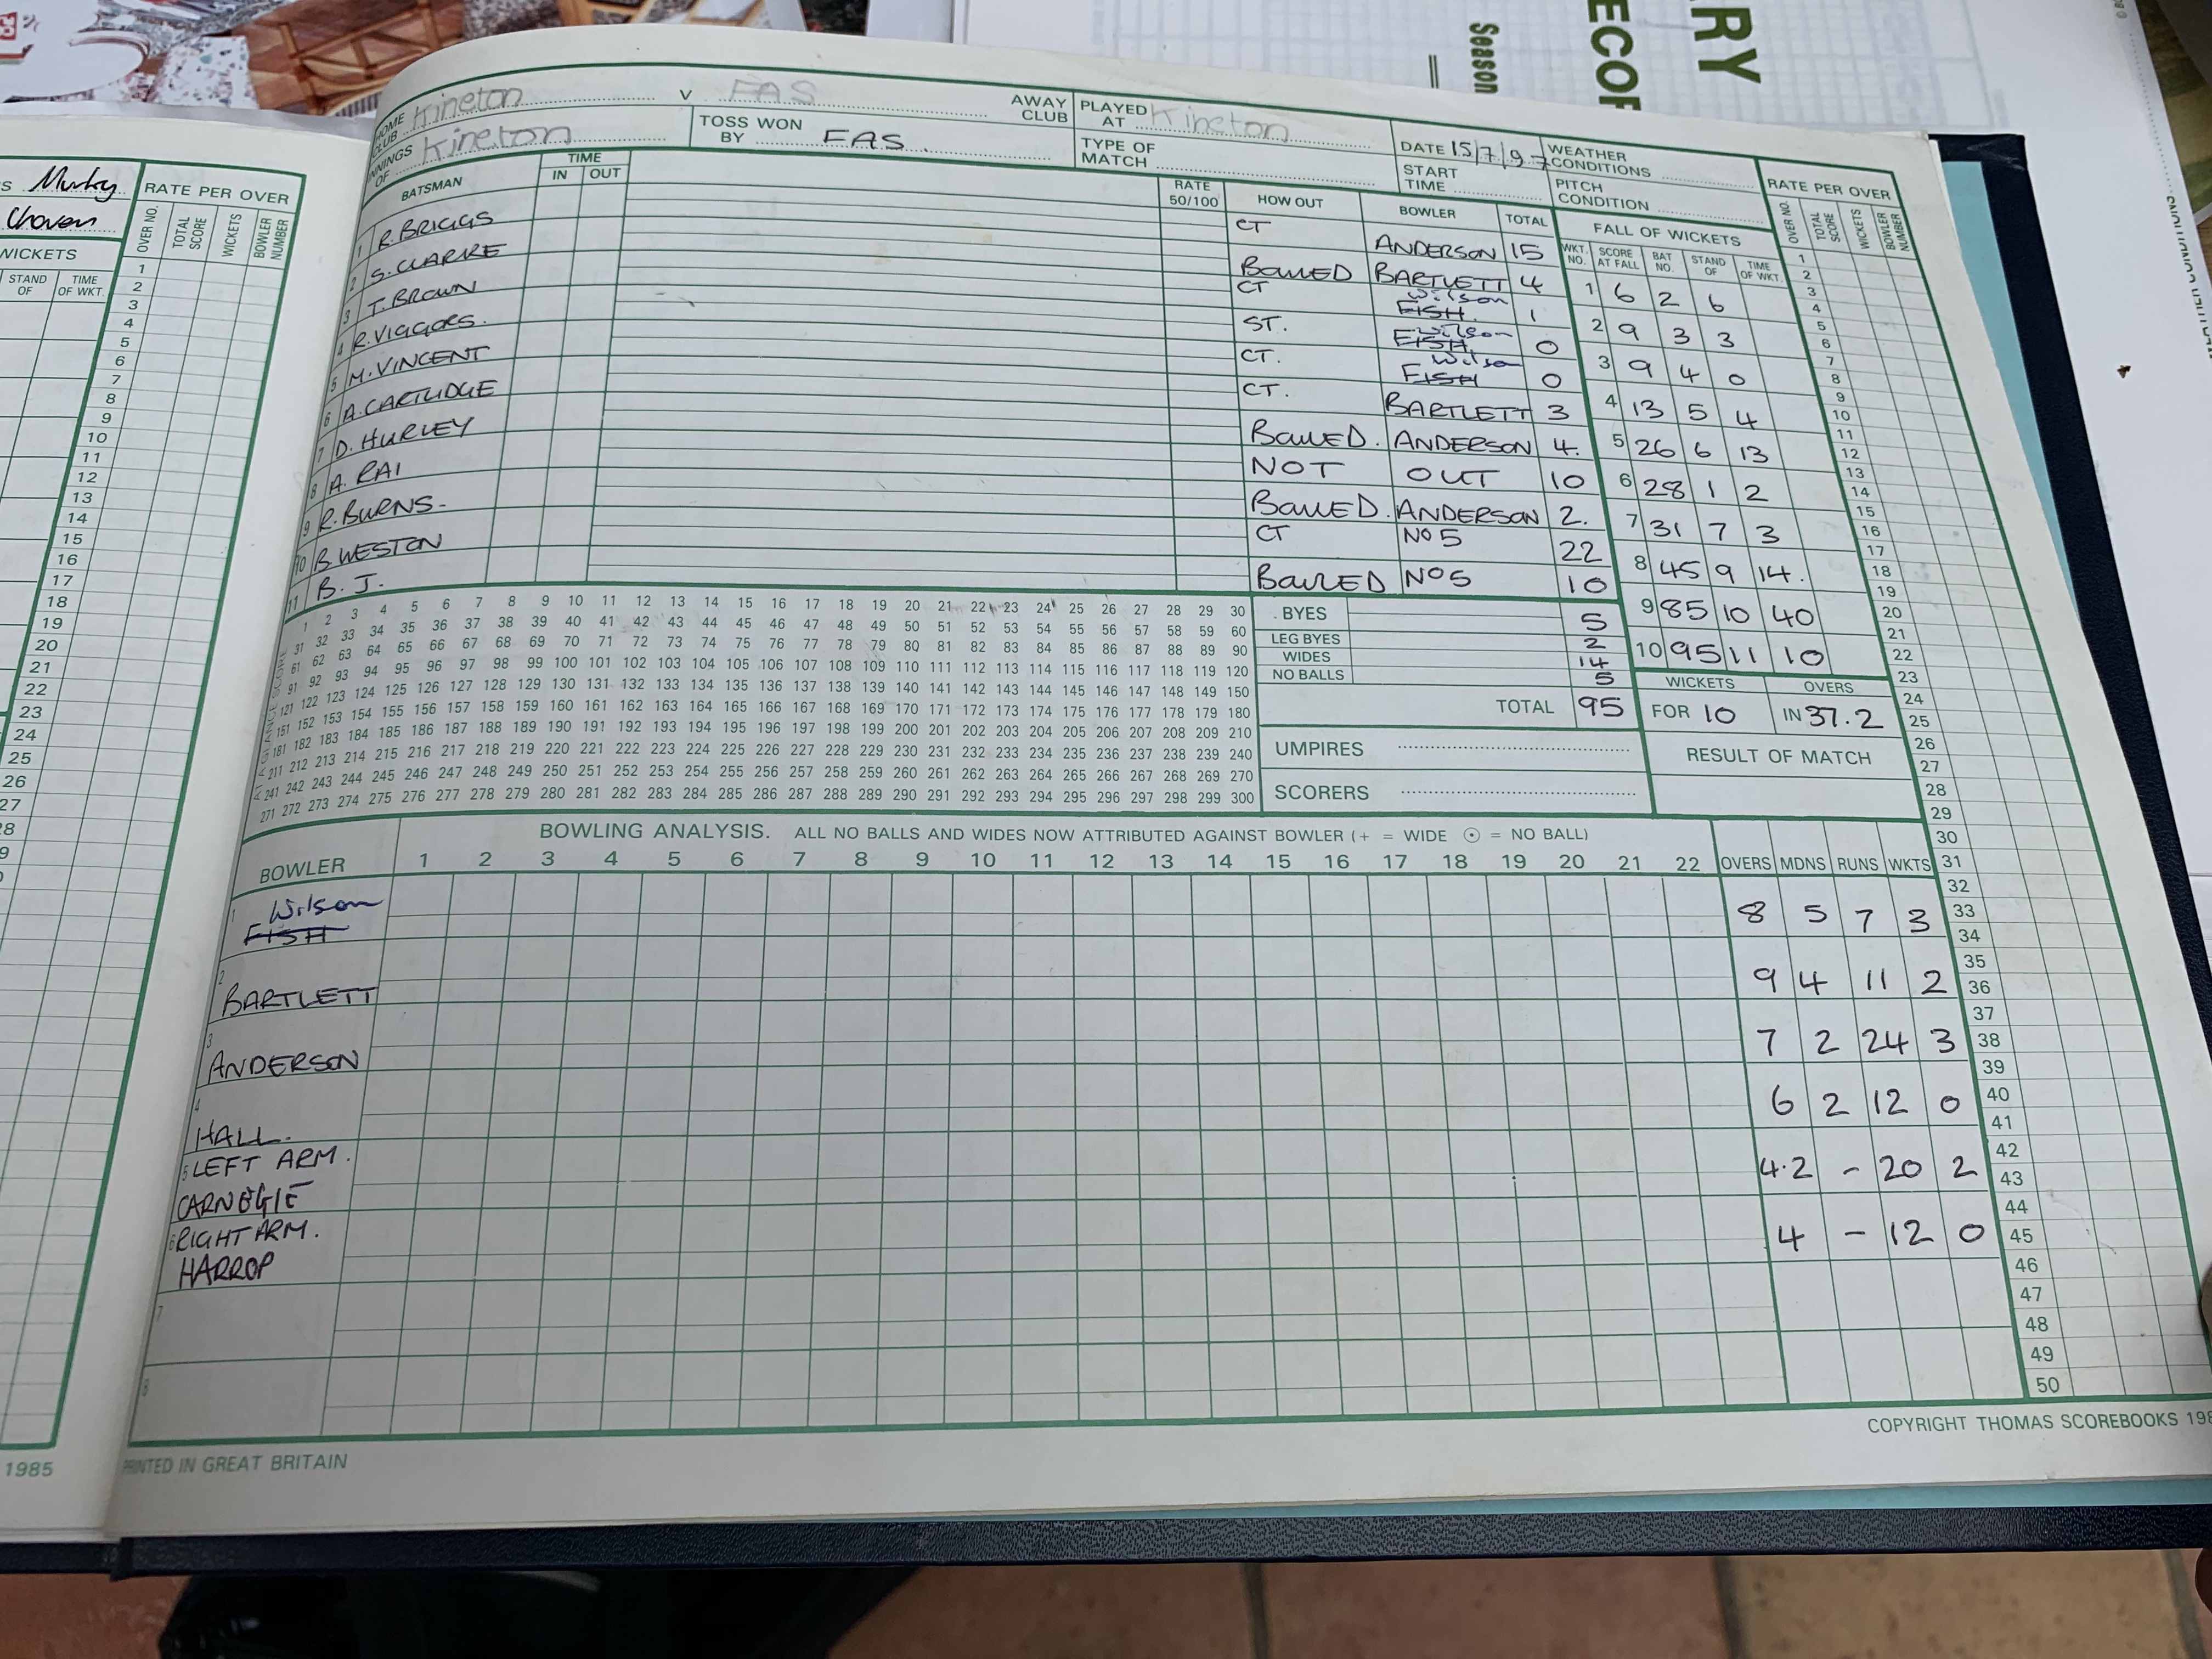 RY
ECOR
Season
HOME CLUB Kineton V FAS AWAY CLUB
INNINGS OF Kineton
TOSS WON BY FAS.
PLAYED AT Kineton
TYPE OF MATCH
DATE 15/7/97
START TIME
WEATHER CONDITIONS
PITCH CONDITION
BATSMAN TIME IN OUT RATE 50/100 HOW OUT BOWLER TOTAL
1 R. BRIGGS CT ANDERSON 15
2 S. CLARKE BOWLED BARTLETT 4
3 T. BROWN CT Wilson FISH. 1
4 R. VIGGORS. ST. Wilson FISH 0
5 M. VINCENT CT. Wilson FISH 0
6 A. CARTLIDGE CT. BARTLETT 3
7 D. HURLEY BOWLED. ANDERSON 4.
8 A. RAI NOT OUT 10
9 R. BURNS. BOWLED. ANDERSON 2.
10 B. WESTON CT No 5 22
11 B. J. BOWLED No5 10
FALL OF WICKETS
WKT. NO. SCORE AT FALL BAT NO. STAND OF TIME OF WKT.
1 6 2 6
2 9 3 3
3 9 4 0
4 13 5 4
5 26 6 13
6 28 1 2
7 31 7 3
8 45 9 14.
9 85 10 40
10 95 11 10
WICKETS OVERS
FOR 10 IN 37.2
RESULT OF MATCH
BYES 5
LEG BYES 2
WIDES 14
NO BALLS 5
TOTAL 95
UMPIRES
SCORERS
1 2 3 4 5 6 7 8 9 10 11 12 13 14 15 16 17 18 19 20 21 22 23 24 25 26 27 28 29 30
31 32 33 34 35 36 37 38 39 40 41 42 43 44 45 46 47 48 49 50 51 52 53 54 55 56 57 58 59 60
61 62 63 64 65 66 67 68 69 70 71 72 73 74 75 76 77 78 79 80 81 82 83 84 85 86 87 88 89 90
91 92 93 94 95 96 97 98 99 100 101 102 103 104 105 106 107 108 109 110 111 112 113 114 115 116 117 118 119 120
121 122 123 124 125 126 127 128 129 130 131 132 133 134 135 136 137 138 139 140 141 142 143 144 145 146 147 148 149 150
151 152 153 154 155 156 157 158 159 160 161 162 163 164 165 166 167 168 169 170 171 172 173 174 175 176 177 178 179 180
181 182 183 184 185 186 187 188 189 190 191 192 193 194 195 196 197 198 199 200 201 202 203 204 205 206 207 208 209 210
211 212 213 214 215 216 217 218 219 220 221 222 223 224 225 226 227 228 229 230 231 232 233 234 235 236 237 238 239 240
241 242 243 244 245 246 247 248 249 250 251 252 253 254 255 256 257 258 259 260 261 262 263 264 265 266 267 268 269 270
271 272 273 274 275 276 277 278 279 280 281 282 283 284 285 286 287 288 289 290 291 292 293 294 295 296 297 298 299 300
BOWLING ANALYSIS. ALL NO BALLS AND WIDES NOW ATTRIBUTED AGAINST BOWLER (+ = WIDE ⊙ = NO BALL)
BOWLER 1 2 3 4 5 6 7 8 9 10 11 12 13 14 15 16 17 18 19 20 21 22 OVERS MDNS RUNS WKTS
1 Wilson FISH 8 5 7 3
2 BARTLETT 9 4 11 2
3 ANDERSON 7 2 24 3
4 HALL. 6 2 12 0
5 LEFT ARM. CARNEGIE 4.2 - 20 2
6 RIGHT ARM. HARROP 4 - 12 0
7
8
RATE PER OVER
OVER NO. TOTAL SCORE WICKETS BOWLER NUMBER
1
2
3
4
5
6
7
8
9
10
11
12
13
14
15
16
17
18
19
20
21
22
23
24
25
26
27
28
29
30
31
32
33
34
35
36
37
38
39
40
41
42
43
44
45
46
47
48
49
50
PRINTED IN GREAT BRITAIN
COPYRIGHT THOMAS SCOREBOOKS 198
RATE PER OVER
OVER NO. TOTAL SCORE WICKETS BOWLER NUMBER
WICKETS
STAND OF TIME OF WKT.
1
2
3
4
5
6
7
8
9
10
11
12
13
14
15
16
17
18
19
20
21
22
23
24
25
26
27
1985